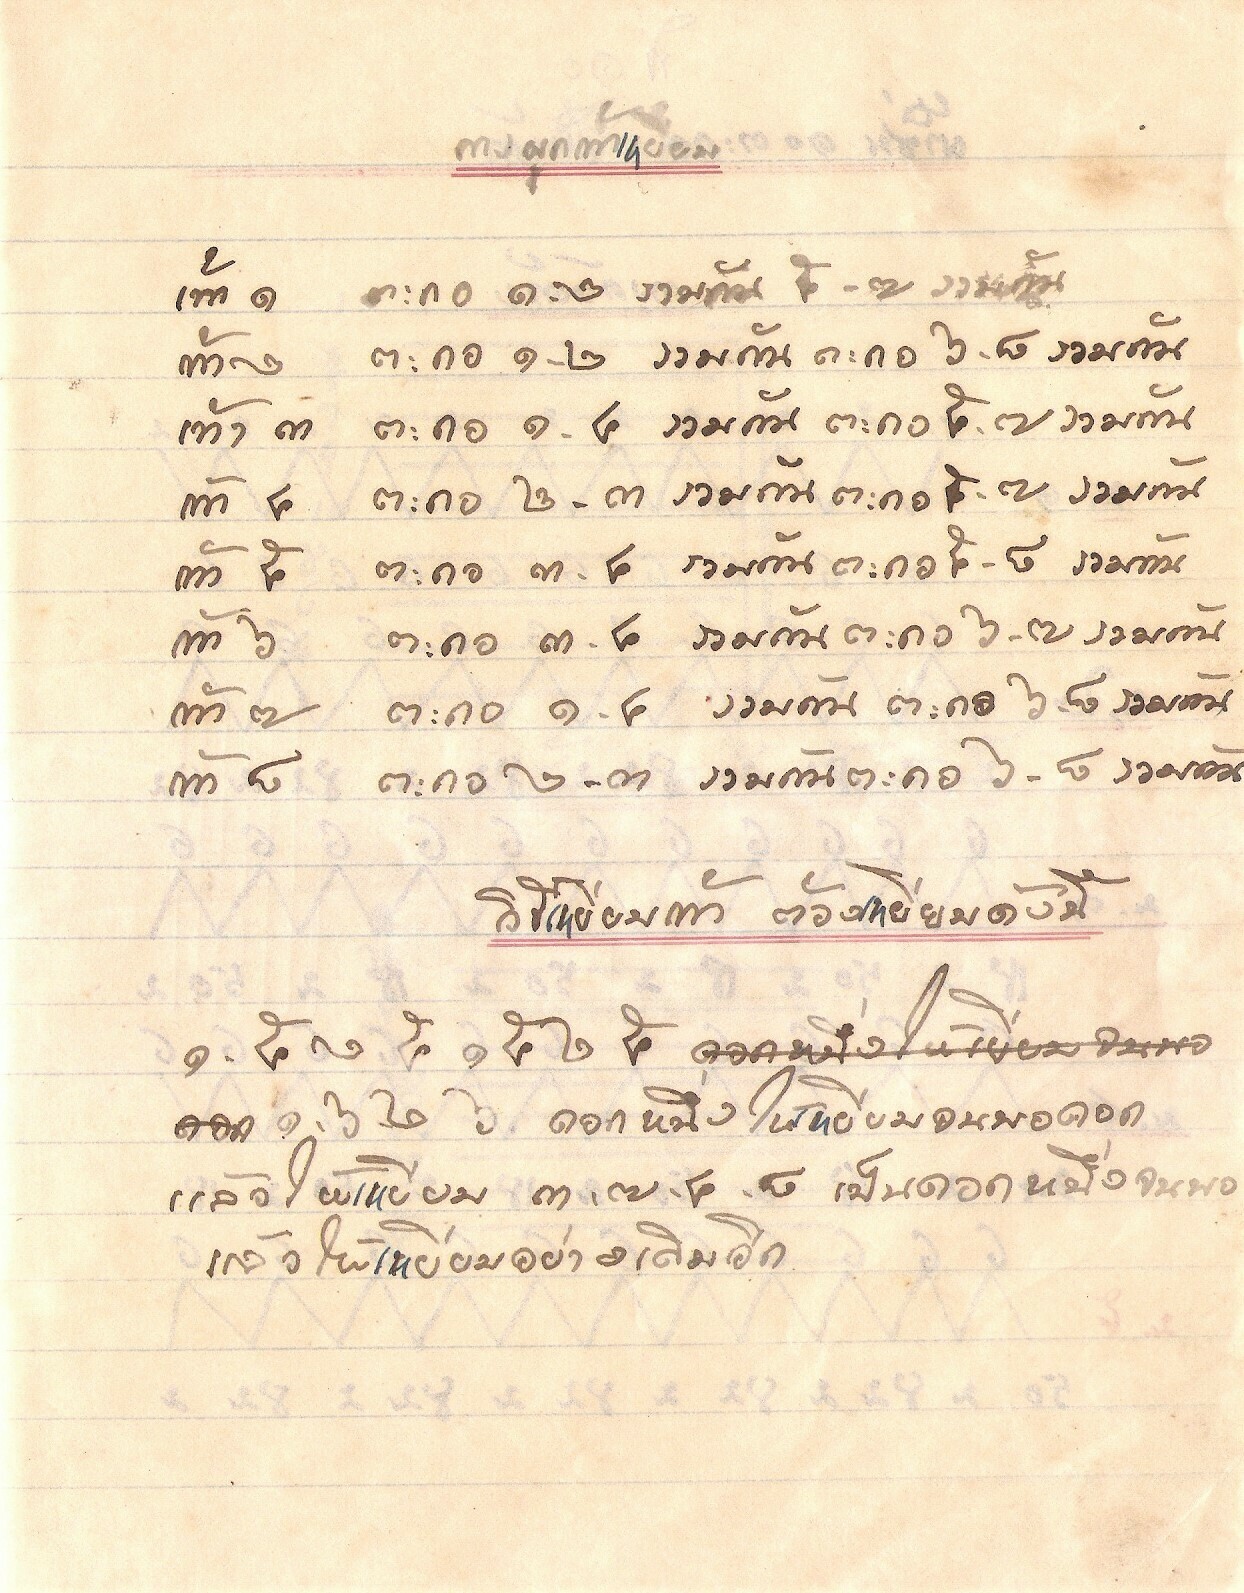 การผูกเท้าเหยียบ
เท้ ๑ ตะกอ ๑.๒ รวมกัน ๕ - ๗ รวมกัน
เท้า ๒ ตะกอ ๑-๒ รวมกัน ตะกอ ๖-๘ รวมกัน
เท้า ๓ ตะกอ ๑-๔ รวมกัน ตะกอ ๕-๗ รวมกัน
เท้า ๔ ตะกอ ๒-๓ รวมกัน ตะกอ ๕-๗ รวมกัน
เท้า ๕ ตะกอ ๓-๔ รวมกัน ตะกอ ๕-๘ รวมกัน
เท้า ๖ ตะกอ ๓-๔ รวมกัน ตะกอ ๖-๗ รวมกัน
เท้า ๗ ตะกอ ๑-๔ รวมกัน ตะกอ ๖-๘ รวมกัน
เท้า ๘ ตะกอ ๒-๓ รวมกัน ตะกอ ๖-๘ รวมกัน
วิธีเหยี่ยมเท้า ต้องเหยี่ยมดังนี้
๑.๕ ๒ ๕ ๑ ๕ ๒ ๕ ดอกหนึ่งให้เหยี่ยมจนพอ
ดอก ๑.๖ ๒ ๖ ดอกหนึ่งให้เหยี่ยมจนพอดอก
แล้วให้เหยี่ยม ๓.๗.๔.๘ เป็นดอกหนึ่งจนพอ
แล้วให้เหยี่ยมอย่างเดิมอีก